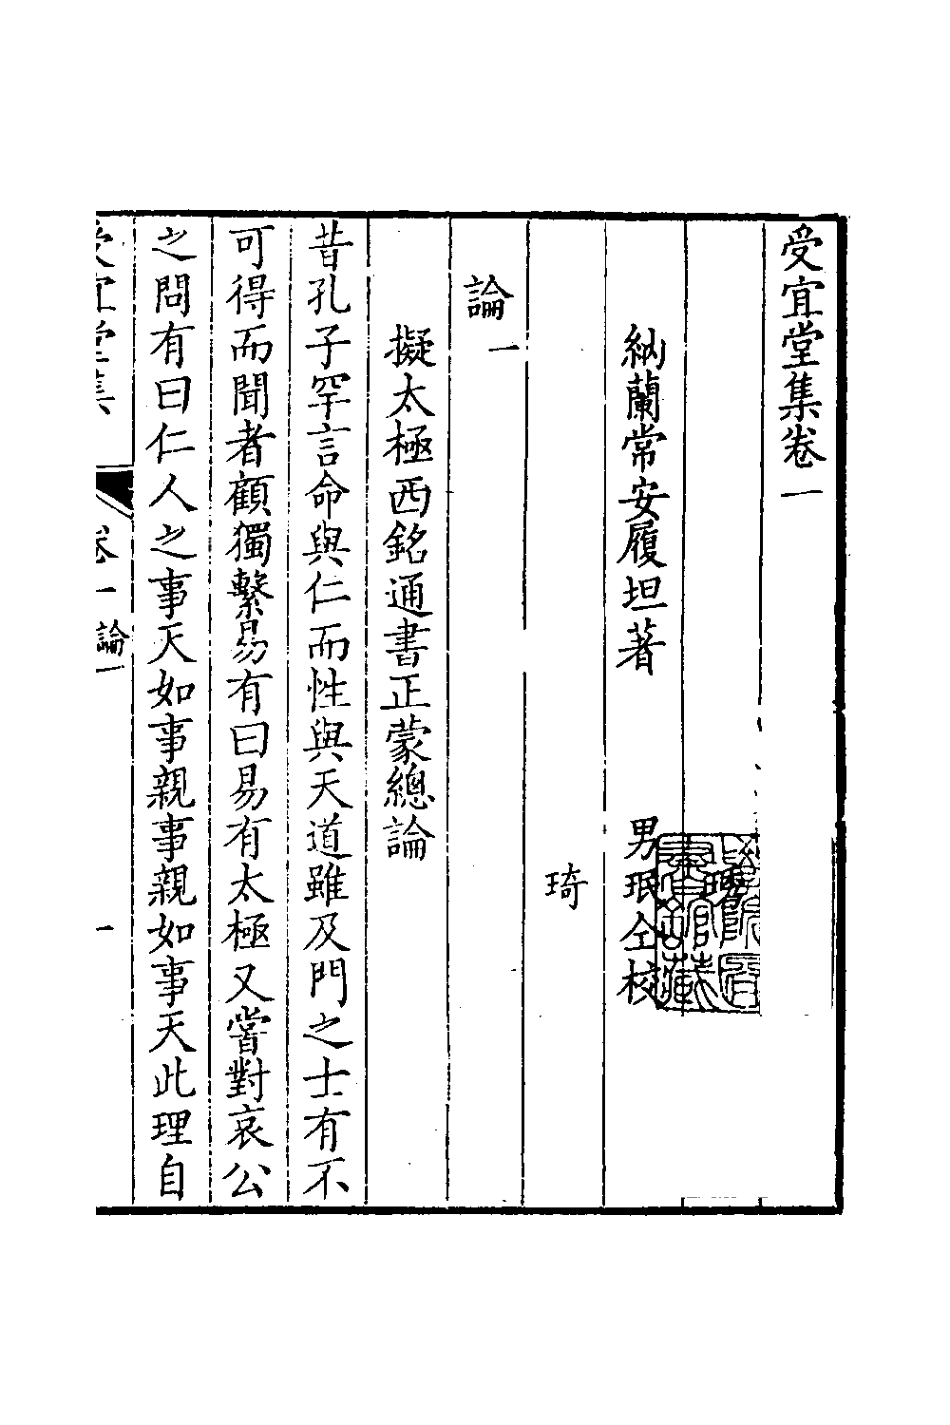 受宜堂集卷一
納蘭常安履坦著
男珉仝校
琦
論一
擬太極西銘通書正蒙總論
昔孔子罕言命與仁而性與天道雖及門之士有不
可得而聞者顧獨繫易有曰易有太極又嘗對哀公
之問有曰仁人之事天如事親事親如事天此理自
受宜堂集
卷一
論一
一